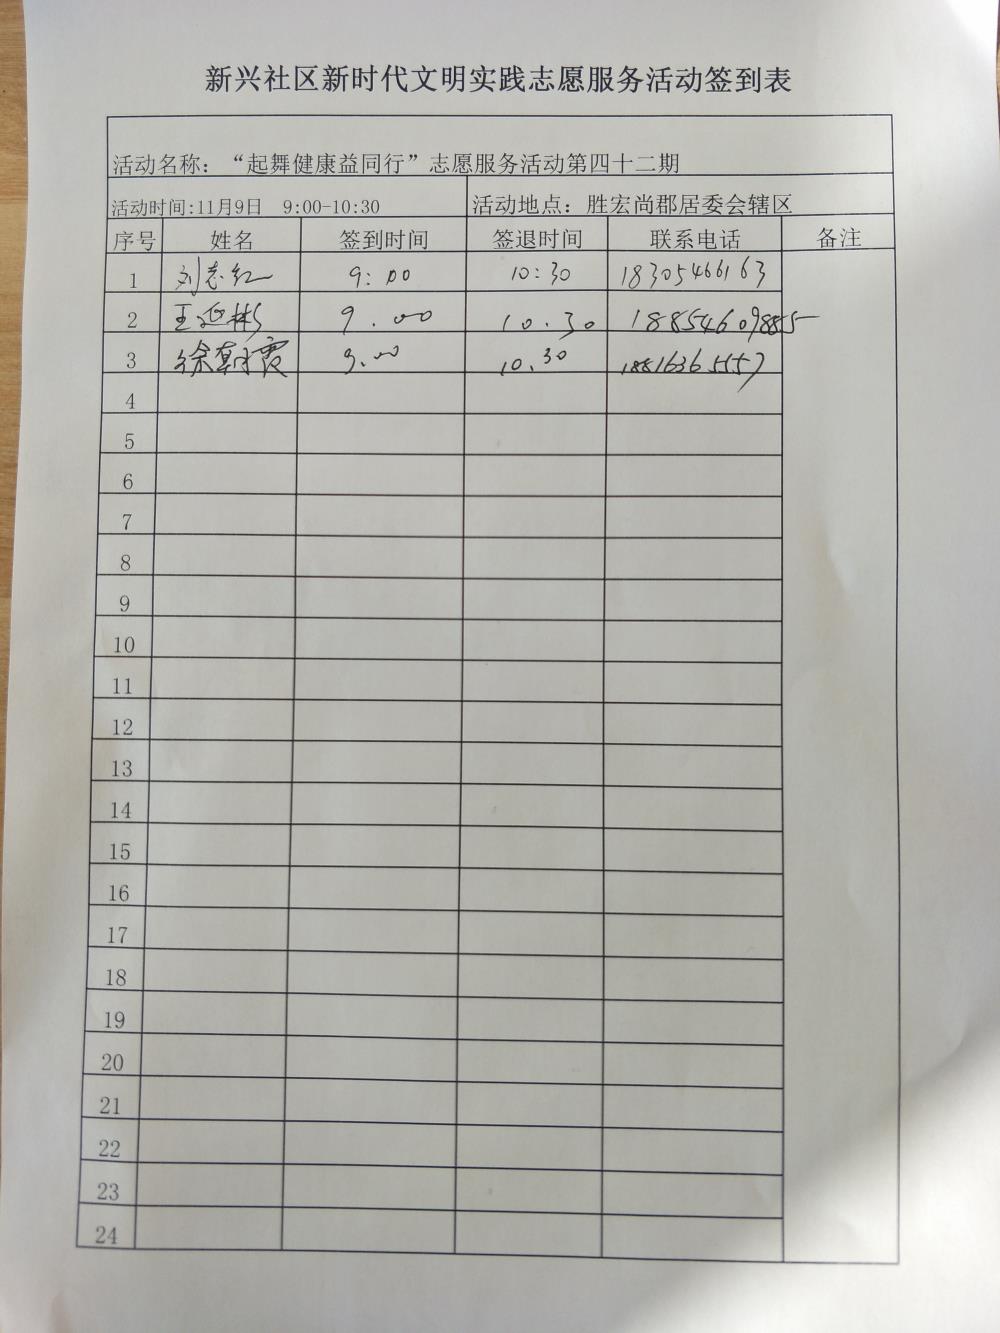 新兴社区新时代文明实践志愿服务活动签到表
活动名称：“起舞健康益同行”志愿服务活动第四十二期
活动时间:11月9日 9:00-10:30 活动地点：胜宏尚郡居委会辖区
序号 姓名 签到时间 签退时间 联系电话 备注
1 刘志红 9:00 10:30 18305466163
2 王延彬 9.00 10.30 18854609885
3 徐朝霞 9.00 10.30 18816365557
4
5
6
7
8
9
10
11
12
13
14
15
16
17
18
19
20
21
22
23
24